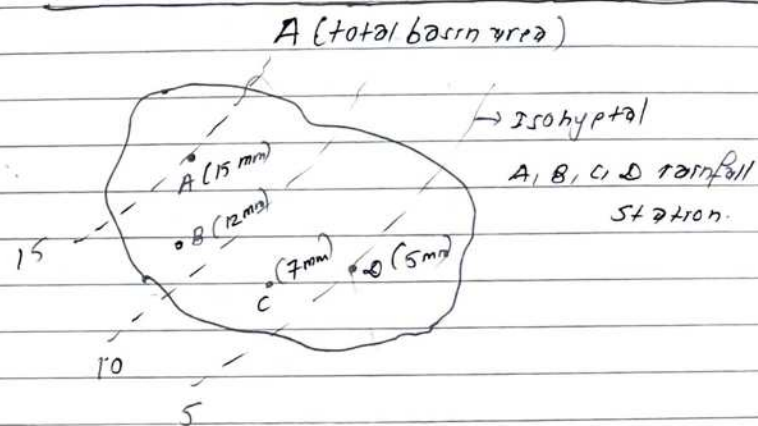 A (total basin area)
→ Isohyptal
A, B, C, D rainfall
station.
A (15 mm)
B (12 mm)
(7 mm)
C
D (5 mm)
15
10
5